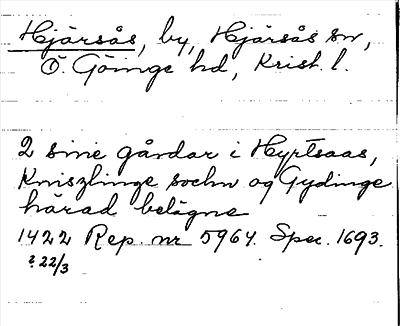 Hjärsås, by, Hjärsås sn,
Ö. Göinge hd, Krist. l.
2 sine gårdar i Hyrtsaas,
Kniszlinge sochn og Gydinge
härad belägne
1422 Rep. nr 5964. Spec. 1693.
? 22/3